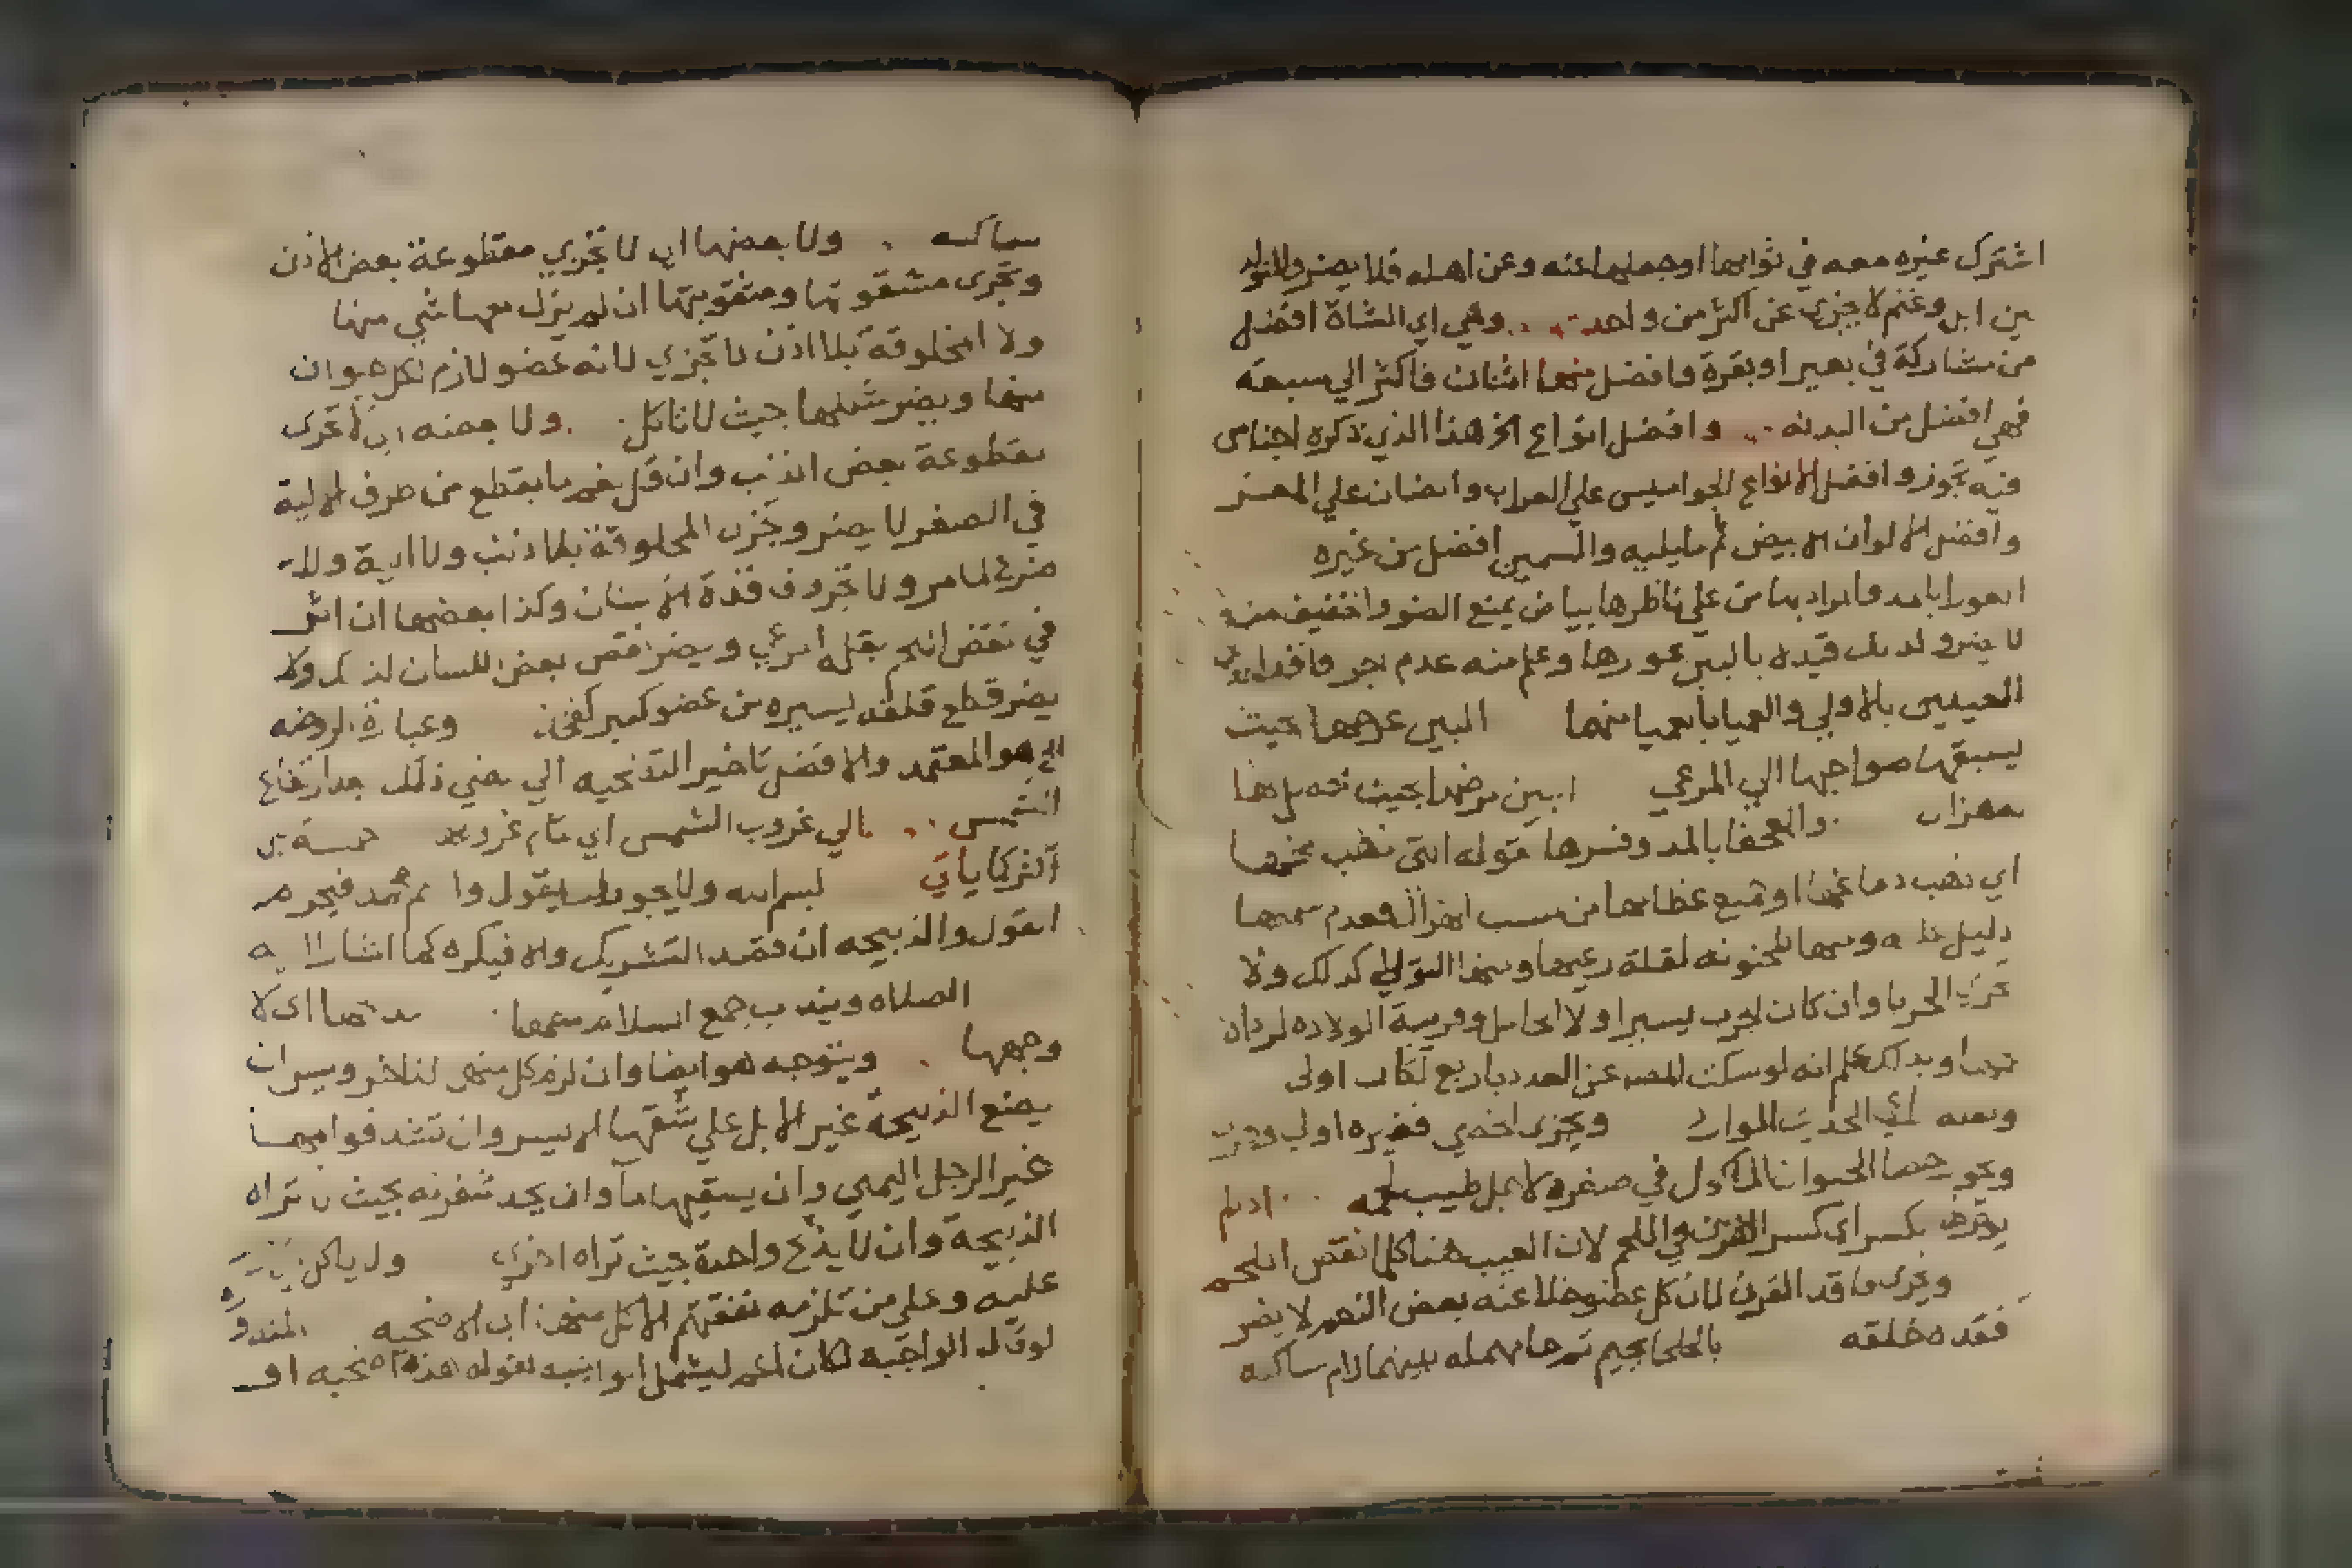 اشترك غيره معه في ثوابها او جعلها عنه وعن اهله فلا يضر والمتولد
بين ابل وغنم لا يجزي عن اكثر من واحد وهي اي الشاة افضل
من مشاركة في بعير او بقرة وافضل منها اثنان فاكثر الي سبعة
فهي افضل من البدنه وافضل انواع الخ هذا الذي ذكره اجناس
فيه تجوز وافضل الانواع الجواميس علي العراب والضان علي المعز
وافضل الالوان الابيض ثم ما يليه والسمين افضل من غيره
العورا بالمد والمراد بها من علي ناظرها بياض يمنع الضو والخفيف منه
لا يضر ولذلك قيده بالبين عورها وعلم منه عدم اجزا فاقدة
العينين بالاولي والعميا بالعميا منهما البين عرجها بحيث
يسبقها صواحبها الي المرعي البين مرضها بحيث تحصل لها
هزال والعجفا بالمد وفسرها بقوله التي ذهب مخها
اي ذهب دماغها او مخ عظامها من سبب الهزال فعدم سمنها
دليل عليه ومثلها المجنونه لقلة رعيها وهذا التولي كذلك ولا
تجزي الجربا وان كان الجرب يسيرا ولا الحامل وقريبة الولاده لرداة
لحمها وبذلك علم انه لو سكت المص عن العدد باربع لكان اولى
ولعله الحديث الوارد ويجزى الخصي فغيره اولي
ويجوز خصا الحيوانات الماكول في صغره لاجل طيب لحمه اذا لم
يؤثر بكسر اي كسر القرن في اللحم لان العيب هنا كل ما نقص اللحم
ويجزى فاقد القرن لان كل عضو خلا عنه بعض النعم لا يضر
فقده خلقه بالجلحا بجيم ثم حا مهمله بينهما لام ساكنه
ساكنه ولا بعضها اي لا تجزي مقطوعة بعض الاذن
وتجزى مشقوقتها ومثقوبتها ان لم يزل معها شي منها
ولا المخلوقة بلا اذن لا تجزي لانه عضو لازم لكل حيوان
منها ويضر شللها حيث لا تاكل ولا بعضه اي لا تجزى
مقطوعة بعض الذنب وان قل نعم ما يقطع من طرف الالية
في الصغر لا يضر وتجزى المخلوقة بلا ذنب ولا الية ولا
ضرع لما مر ولا تجزي فاقدة الاسنان وكذا بعضها ان اثر
في نقص اللحم بقلة المرعي ويضر نقص بعض اللسان لذلك ولا
يضر قطع فلقه يسيره من عضو كبير كفخذ وعبارة الروضه
الخ هو المعتمد والافضل تاخير التضحيه الي مضي ذلك بعد ارتفاع
الشمس الي غروب الشمس اي تمام غروبها خمسة بل
اكثر كما ياتي بسم الله ولا يجوز ان يقول واسم محمد فيحرم
القول والذبيحه ان قصد التشريك والا فيكره كما اشار اليه
الصلاه ويندب جمع السلام معها مذبحها اي لا
وجهها ويتوجه هو ايضا وان لزم كل منهما للاخر ويسن ان
يضع الذبيحة غير الابل علي شقها الايسر وان تشد قوايمها
غير الرجل اليمني وان يسقيها ماء وان يحد شفرته بحيث لا تراه
الذبيحة وان لا يذبح واحدة بحيث تراه اخري ولا ياكل
عليه وعلي من تلزمه نفقتهم الاكل منها اي الاضحيه المنذورة
لو قال الواجبه لكان اعم ليشمل الواجبه بقوله هذه اضحيه او